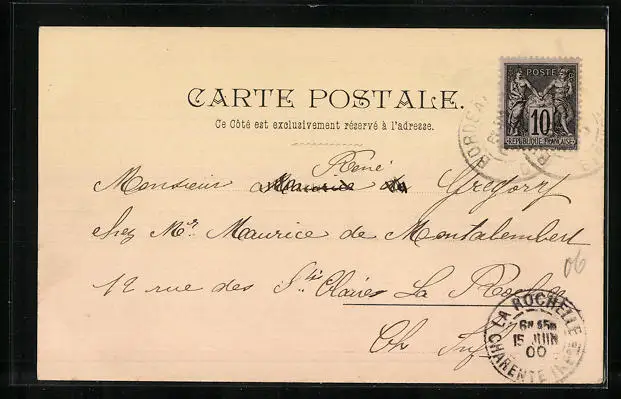 CARTE POSTALE.
Ce Côté est exclusivement réservé à l'adresse.
POSTE
10
REPUBLIQUE FRANÇAISE
BORDEA
René
Monsieur Maurice de Gregory
chez Mr Maurice de Montalembert
12 rue des Stes Claires La Rochelle
Ch Inf
06
LA ROCHELLE
15 JUIN
00
CHARENTE INFRE